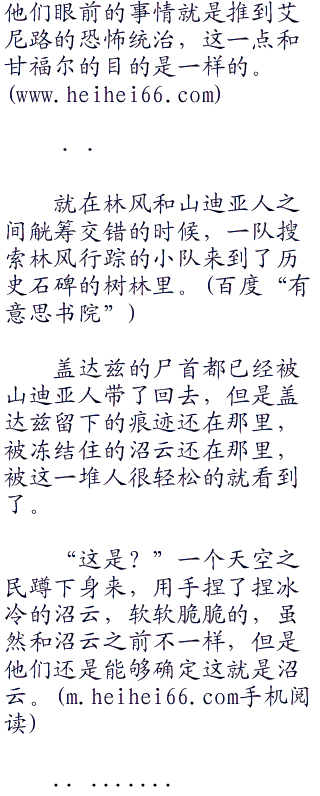 他们眼前的事情就是推到艾
尼路的恐怖统治，这一点和
甘福尔的目的是一样的。
(www.heihei66.com)
. .
就在林风和山迪亚人之
间觥筹交错的时候，一队搜
索林风行踪的小队来到了历
史石碑的树林里。(百度“有
意思书院”)
盖达兹的尸首都已经被
山迪亚人带了回去，但是盖
达兹留下的痕迹还在那里，
被冻结住的沼云还在那里，
被这一堆人很轻松的就看到
了。
“这是？”一个天空之
民蹲下身来，用手捏了捏冰
冷的沼云，软软脆脆的，虽
然和沼云之前不一样，但是
他们还是能够确定这就是沼
云。(m.heihei66.com手机阅
读)
.. .......